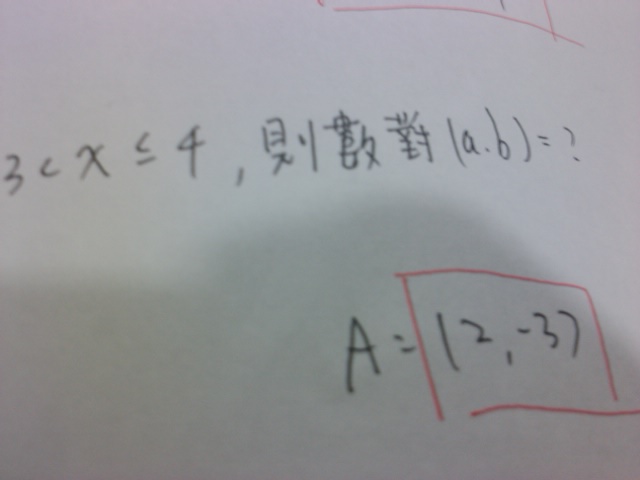 3 < x ≤ 4 , 則數對(a.b)=?
A=(2,-3)